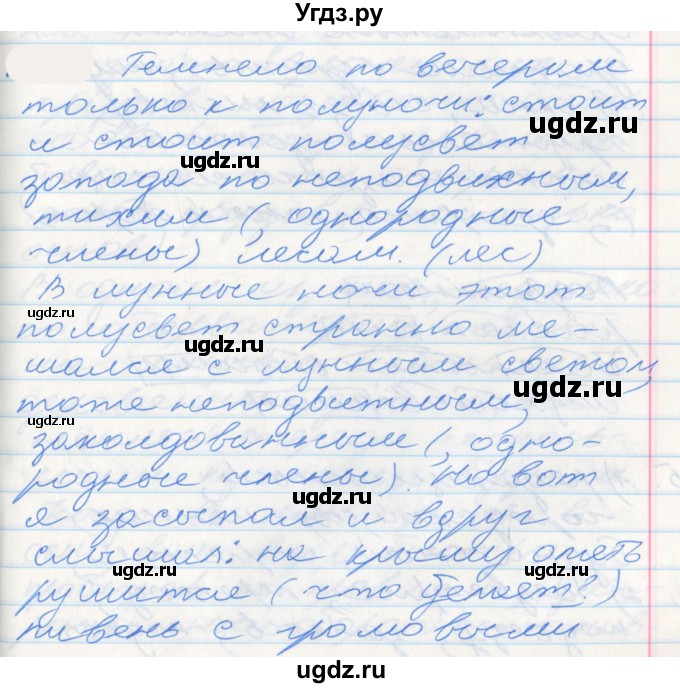 Угдз.ру
Темнело по вечерам
только к полуночи: стоит
и стоит полусвет
запада по неподвижным,
тихим (, однородные
члены) лесам. (лес)
В лунные ночи этот
полусвет странно ме-
шался с лунным светом,
тоже неподвижным,
заколдованным (, одно-
родные члены). Но вот
я засыпал и вдруг
слышал: на крышу опять
рушится (что делает?)
пивень с громовыми
ugdz.ru
ugdz.ru
ugdz.ru
ugdz.ru
ugdz.ru
ugdz.ru
ugdz.ru
ugdz.ru
ugdz.ru
ugdz.ru
ugdz.ru
ugdz.ru